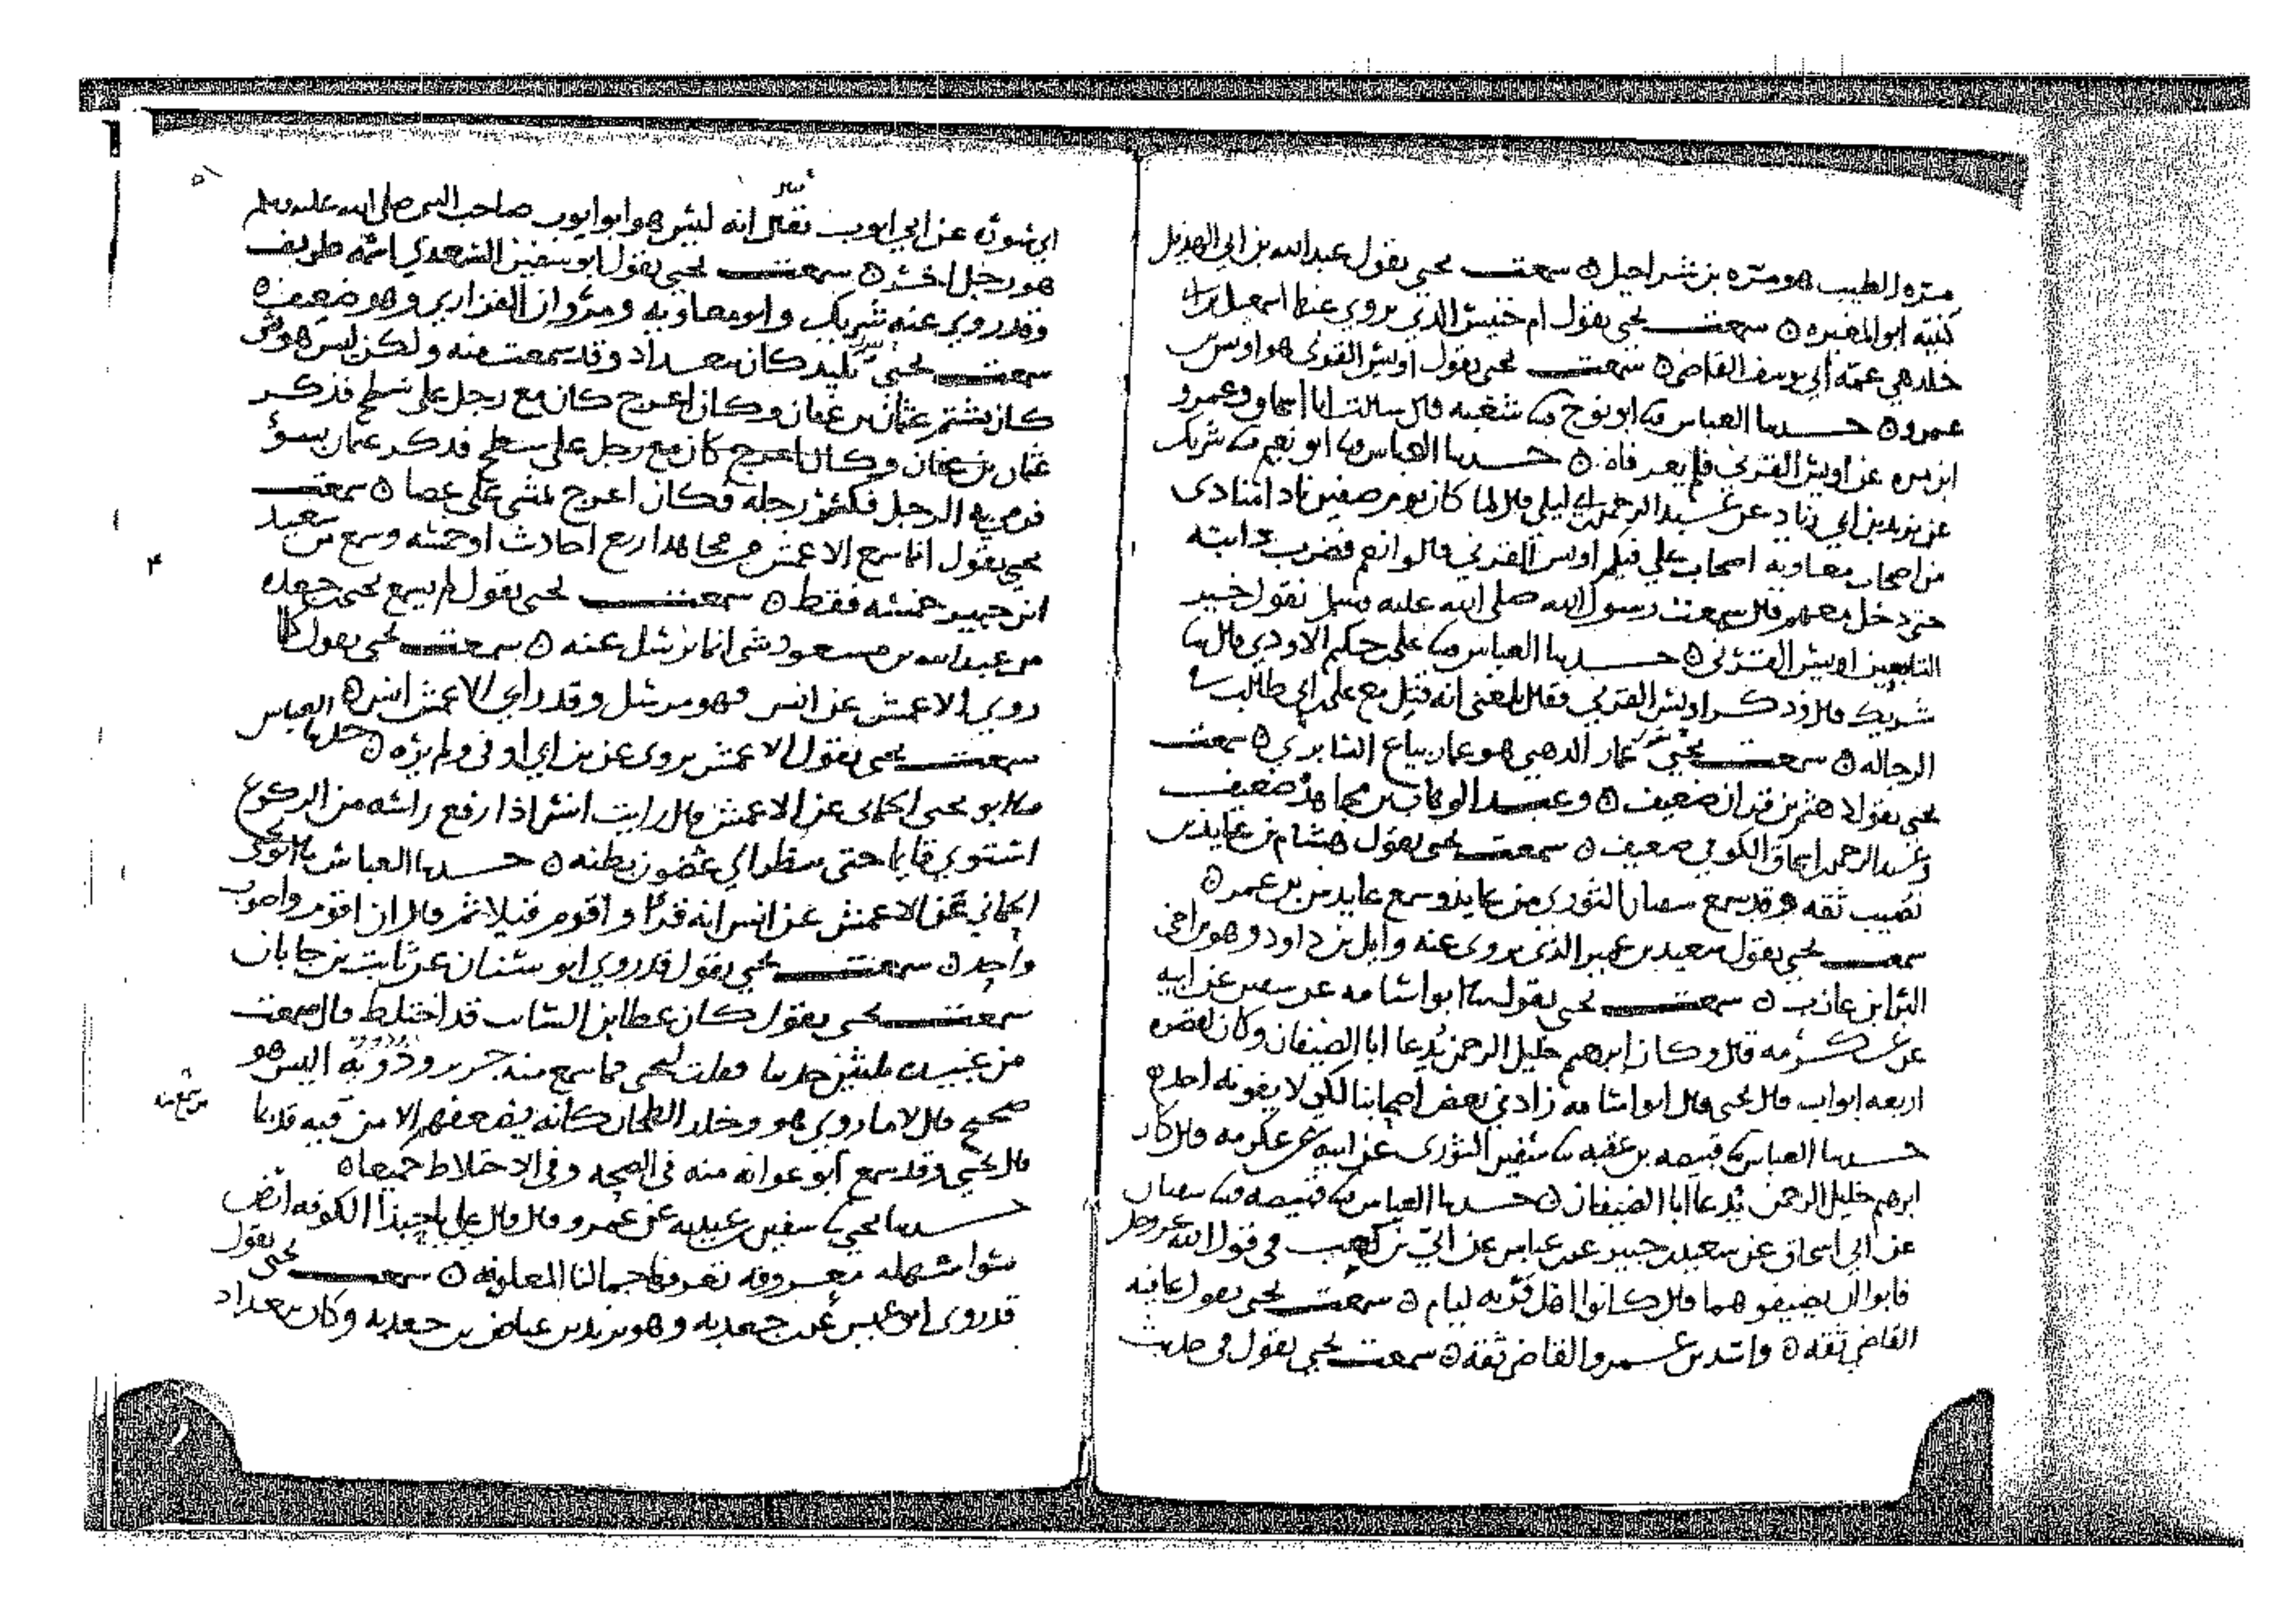 مره الطيب هو مره بن شراحيل ه سمعت يحيى يقول عبد الله بن ابي الهذيل
كنيته ابو المغيره ه سمعت يحيى يقول ام خنيس الذي يروي عنها اسمعيل بن ابي
خلد هي عمة ابي يوسف القاضي ه سمعت يحيى يقول اويس القرني هو اويس بن
عمرو ه حدثنا العباس نا ابو نوح نا شعبه قال سالت ابا اسحاق وعمرو
ابن مره عن اويس القرني فلم يعرفاه ه حدثنا العباس نا ابو نعيم نا شريك
عن يزيد بن ابي زناد عن عبد الرحمن بن ابي ليلى قال لما كان يوم صفين نادا منادى
من اصحاب معاويه اصحاب علي فيكم اويس القرني قالوا نعم فضرب دابته
حتى دخل معهم قال سمعت رسول الله صلى الله عليه وسلم يقول خير
التابعين اويس القرني ه حدثنا العباس نا علي بن حكيم الاودي قال نا
شريك قال ذكر اويس القرني فقال بلغني انه قتل مع علي بن ابي طالب في
الرجاله ه سمعت يحيى عمار الدهني هو عمار بياع السابري ه سمعت
يحيى يقول لاهز بن قران ضعيف ه وعبد الوهاب بن مجاهد ضعيف
وعبد الرحمن بن اسحاق الكوفي ضعيف ه سمعت يحيى يقول هشام بن عايذ بن
نصيب ثقه وقد سمع سفيان الثوري من عايذ وسمع عايذ من بن عمر ه
سمعت يحيى يقول سعيد بن عمير الذي يروى عنه وايل بن داود وهو بن اخي
البرا بن عازب ه سمعت يحيى يقول نا ابو اسامه عن سفين عن ابيه
عن عكرمه قال وكان ابرهيم خليل الرحمن يدعا ابا الضيفان وكان لقصره
اربعه ابواب قال يحيى قال ابو اسامه زادني بعض اصحابنا لكي لا يفوته احد ه
حدثنا العباس نا قبيصه بن عقبه نا سفين الثوري عن ابيه عن عكرمه قال كان
ابرهيم خليل الرحمن يدعا ابا الضيفان ه حدثنا العباس نا قبيصه نا سفيان
عن ابي اسحاق عن سعيد بن جبير عن بن عباس عن ابي بن كعب في قول الله عز وجل
فابوا ان يضيفوهما قال كانوا اهل قريه ليام ه سمعت يحيى يقول عافيه
القاضي ثقه ه واسد بن عمرو القاضي ثقه ه سمعت يحيى يقول في حديث
ابي سوره عن ابي ايوب يقال انه ليس هو ابو ايوب صاحب النبي صلى الله عليه وسلم
هو رجل اخر ه سمعت يحيى يقول ابو سفين السعدي اسمه طريف
وقد روى عنه شريك وابو معاويه ومروان الفزاري وهو ضعيف ه
سمعت يحيى تليد كان ببغداد وقد سمعت منه ولكن ليس هو بشي
كان يشتم عثمان بن عفان وكان اعرج كان مع رجل على سطح فذكر
عثمان بن عفان وكان اعرج كان مع رجل على سطح فذكر عثمان بسوء
فرمى به الرجل فكسر رجله فكان اعرج يمشي على عصا ه سمعت
يحيى يقول انما سمع الاعمش من مجاهد اربع احاديث او خمسه وسمع من سعيد
ابن جبير خمسه فقط ه سمعت يحيى يقول لم يسمع يحيى بن جعده
من عبد الله بن مسعود شي انما يرسل عنه ه سمعت يحيى يقول كلما
روى الاعمش عن انس فهو مرسل وقد راى الاعمش انس ه
سمعت يحيى يقول الاعمش يروى عن بن ابي اوفى ولم يره ه حدثنا العباس
نا ابو يحيى الحماني عن الاعمش قال رايت انس اذا رفع راسه من الركوع
استوى قايما حتى ينظر الى غضون بطنه ه حدثنا العباس نا ابو يحيى
الحماني عن الاعمش عن انس انه قرا واقوم قيلا ثم قال ان اقوم واصوب
واحد ه سمعت يحيى يقول قد روى ابو سنان عن ثابت بن جابان
سمعت يحيى يقول كان عطا بن السايب قد اختلط قال سمعت
من عبيده ثلثين حديثا فقلت ليحيى فما سمع منه جرير وذووه اليس هو
صحيح قال لا ما روى هو وخلد الطحان كانه يضعفهم الا من سمع منه قديما
قال يحيى وقد سمع ابو عوانه منه في الصحه وفي الاختلاط جميعا ه
حدثنا يحيى نا سفين بن عيينه عن عمرو قال قال علي يا حبذا الكوفه ارض
سوا سهله معروفه تعرفها جمالنا المعلوفه ه سمعت يحيى يقول
قد روى ابو عبيس عن بن جعدبه وهو يزيد بن عياض بن جعدبه وكان ببغداد